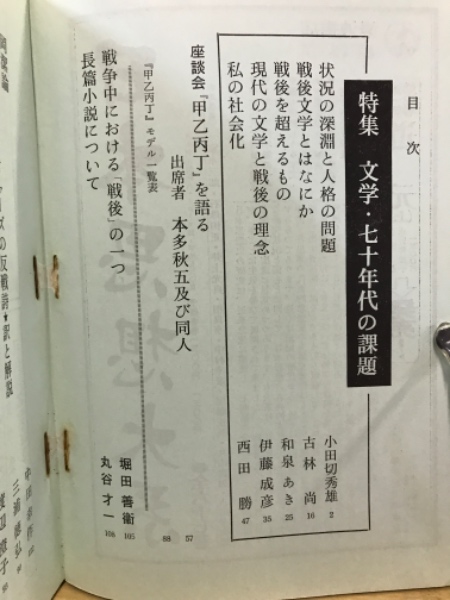 目次
特集 文学・七十年代の課題
状況の深淵と人格の問題 小田切秀雄 2
戦後文学とはなにか 古林尚 16
戦後を超えるもの 和泉あき 25
現代の文学と戦後の理念 伊藤成彦 35
私の社会化 西田勝 47
座談会『甲乙丙丁』を語る 57
出席者 本多秋五及び同人
『甲乙丙丁』モデル一覧表 88
戦争中における「戦後」の一つ 堀田善衛 105
長篇小説について 丸谷才一 108
ズの反戦詩★訳と解説